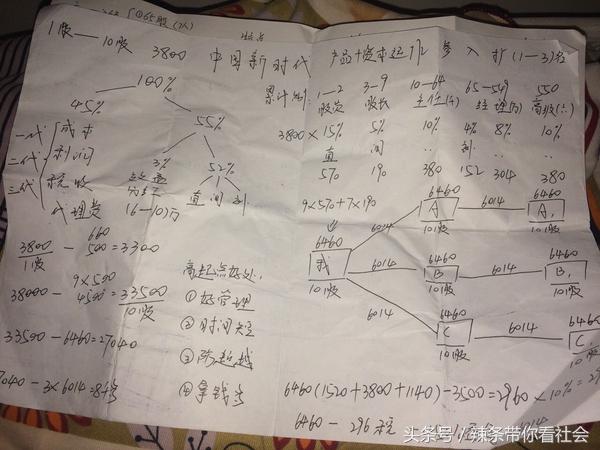 ①65股(2人)
1股—10股 3800 中国新时代
100%
45% 55%
一代 成本
二代 利润
三代 税收
3% 52%
直 间
代理员 16—10万
3800/1股 - 500 = 3300
600
9×500
38000 - 4500 = 33500/10股
33500-6460=27040
7040 - 3×6014 =
高起点好处
① 好管理
② 时间短
④ 拿钱多
产品+资本运作 参入 扩(1—3)名
累计制: 1—2 3—9 10—64 65—549 550
股员 股长 主任(4) 经理(5) 高级(六)
3800× 15% 5% 10% 4% 8% 10%
直 间
570 190 380 152 304 380
9×570+7×190
6460 我 10股
6014 6460 A 10股 6014 6460 A1 10股
6014 6460 B 10股 6014 6460 B1 10股
6014 6460 C 10股 6014 6460 C1 10股
6460(1520+3800+1140)-3500=2960×10%=29
6460-296税
头条号/辣条带你看社会